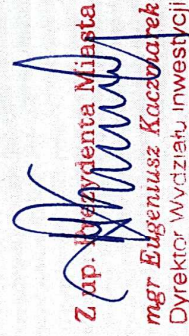 Z up. Prezydenta Miasta
mgr Eugeniusz Kaczmarek
Dyrektor Wydziału Inwestycji